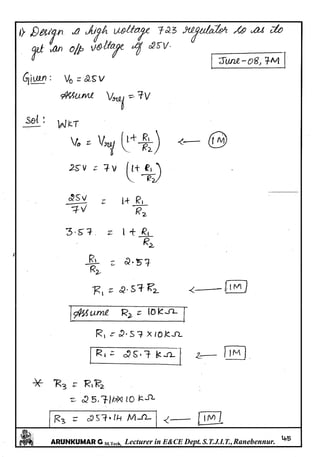 1) Design a high voltage 723 regulator so as to
get an o/p voltage of 25V.
June-08, 7M
Given: Vo = 25V
Assume Vref = 7V
Sol: WKT
Vo = Vref (1 + R1/R2) ← (1M)
25V = 7V (1 + R1/R2)
25V/7V = 1 + R1/R2
3.57 = 1 + R1/R2
R1/R2 = 2.57
R1 = 2.57 R2 ← 1M
Assume R2 = 10KΩ
R1 = 2.57 x 10KΩ
R1 = 25.7 KΩ ← 1M
* R3 = R1R2
= 25.71 x 10 KΩ
R3 = 257.14 MΩ ← 1M
ARUNKUMAR G M.Tech, Lecturer in E&CE Dept. S.T.J.I.T., Ranebennur. 45